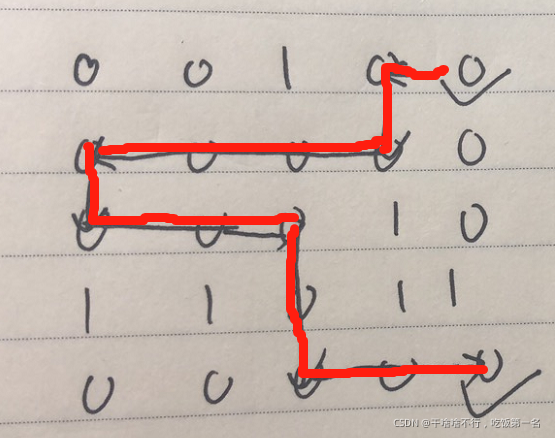 0 0 1 0 0
0 0 0 0 0
0 0 0 1 0
1 1 0 1 1
0 0 0 0 0
CSDN @干啥啥不行，吃饭第一名